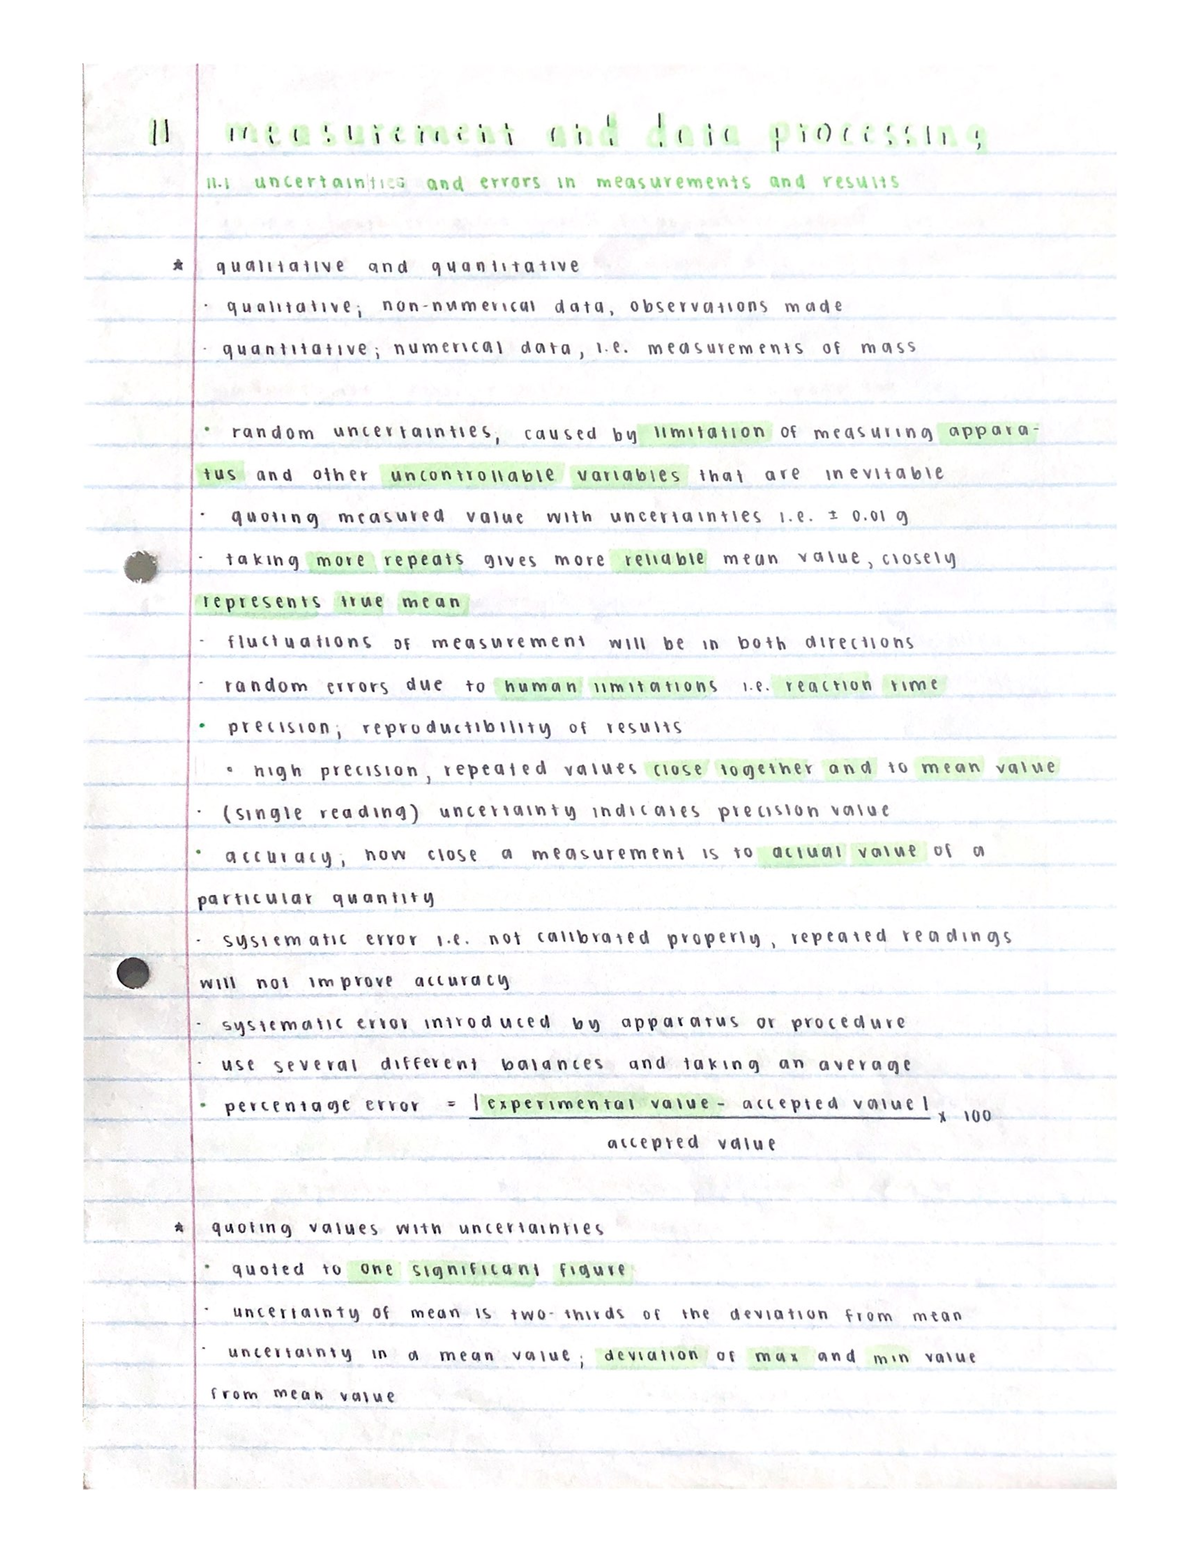 11 measurement and data processing
11.1 uncertainties and errors in measurements and results
* qualitative and quantitative
· qualitative; non-numerical data, observations made
· quantitative; numerical data, i.e. measurements of mass
· random uncertainties, caused by limitation of measuring appara-
tus and other uncontrollable variables that are inevitable
· quoting measured value with uncertainties i.e. ± 0.01 g
· taking more repeats gives more reliable mean value, closely
represents true mean
- fluctuations of measurement will be in both directions
- random errors due to human limitations i.e. reaction time
· precision; reproductibility of results
∘ high precision, repeated values close together and to mean value
· (single reading) uncertainty indicates precision value
· accuracy; how close a measurement is to actual value of a
particular quantity
- systematic error i.e. not calibrated properly, repeated readings
will not improve accuracy
- systematic error introduced by apparatus or procedure
· use several different balances and taking an average
· percentage error = |experimental value - accepted value| x 100
accepted value
* quoting values with uncertainties
· quoted to one significant figure
· uncertainty of mean is two-thirds of the deviation from mean
· uncertainty in a mean value; deviation of max and min value
from mean value